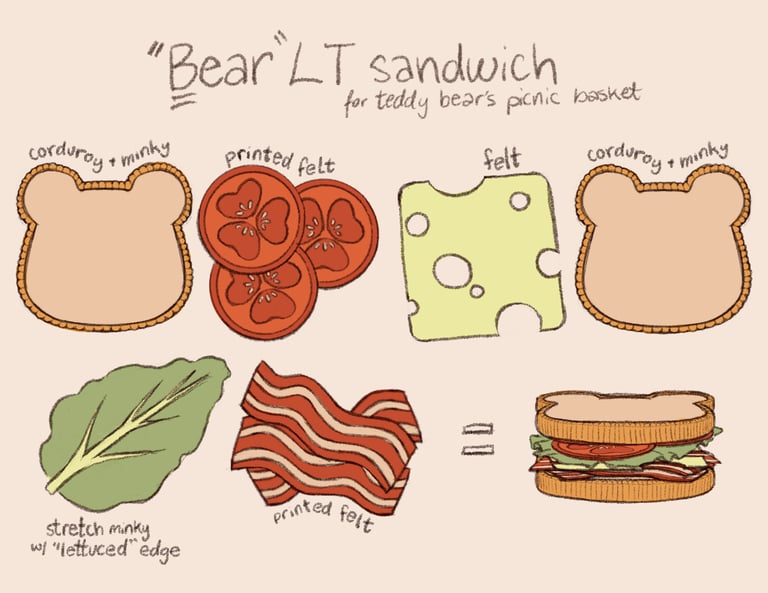 "Bear" LT sandwich
for teddy bear's picnic basket
corduroy + minky
printed felt
felt
corduroy + minky
stretch minky
w/ "lettuced" edge
printed felt
=